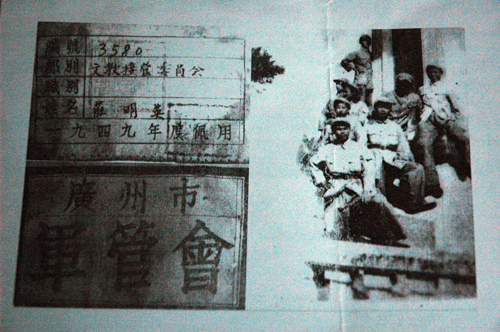 編號 3580
部別 文教接管委員会
職別
姓名 莊明
一九四九年度佩用
廣州市
軍管會